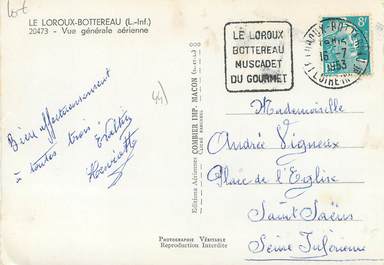 Lot
LE LOROUX-BOTTEREAU (L.-Inf.)
20473 - Vue générale aérienne
LE LOROUX
BOTTEREAU
MUSCADET
DU GOURMET
LE LOROUX-BOTTEREAU
16-7
1953
LOIRE INF
8f
44)
Bien affectueusement
à toutes trois
Henriette
Editions Aériennes COMBIER IMP. MACON
Mademoiselle
Andrée Vigneux
Place de l'Eglise
Saint Saëns
Seine Inférieure
PHOTOGRAPHIE VÉRITABLE
Reproduction Interdite